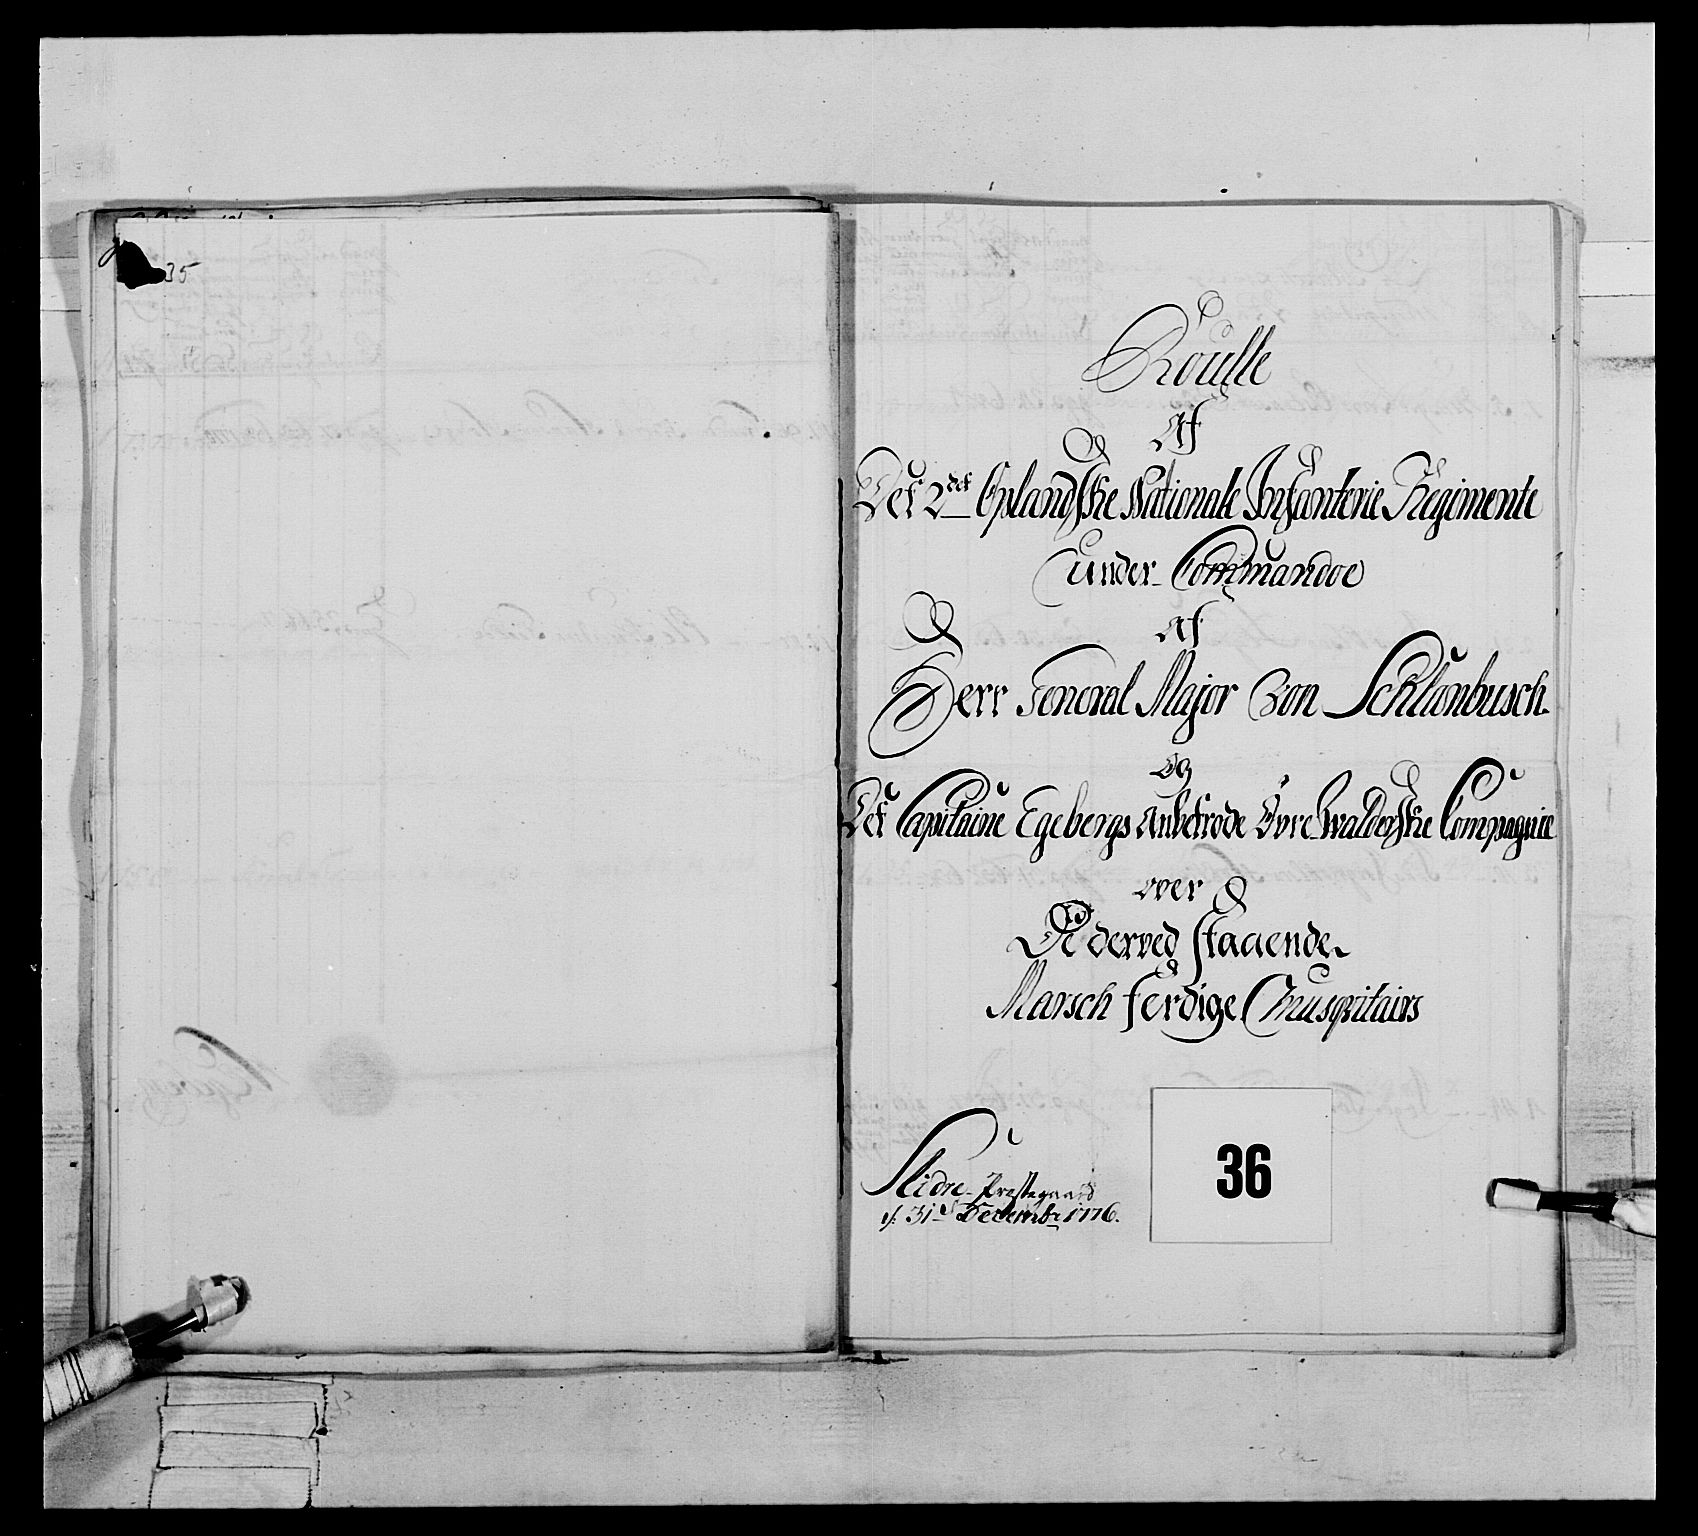 35
Roulle
Af
Det 2det Oplandske Nationale Infanterie Regimente
under Commandoe
Af
Herr General Major von Schlanbusch.
Og
Det Capitaine Egebergs Anbetrode Øvre Walderske Compagnie
over
De derved staaende
Marsch ferdige Musqvitairs
Slidre Prestegaard
d: 31te Decembr 1776.
36